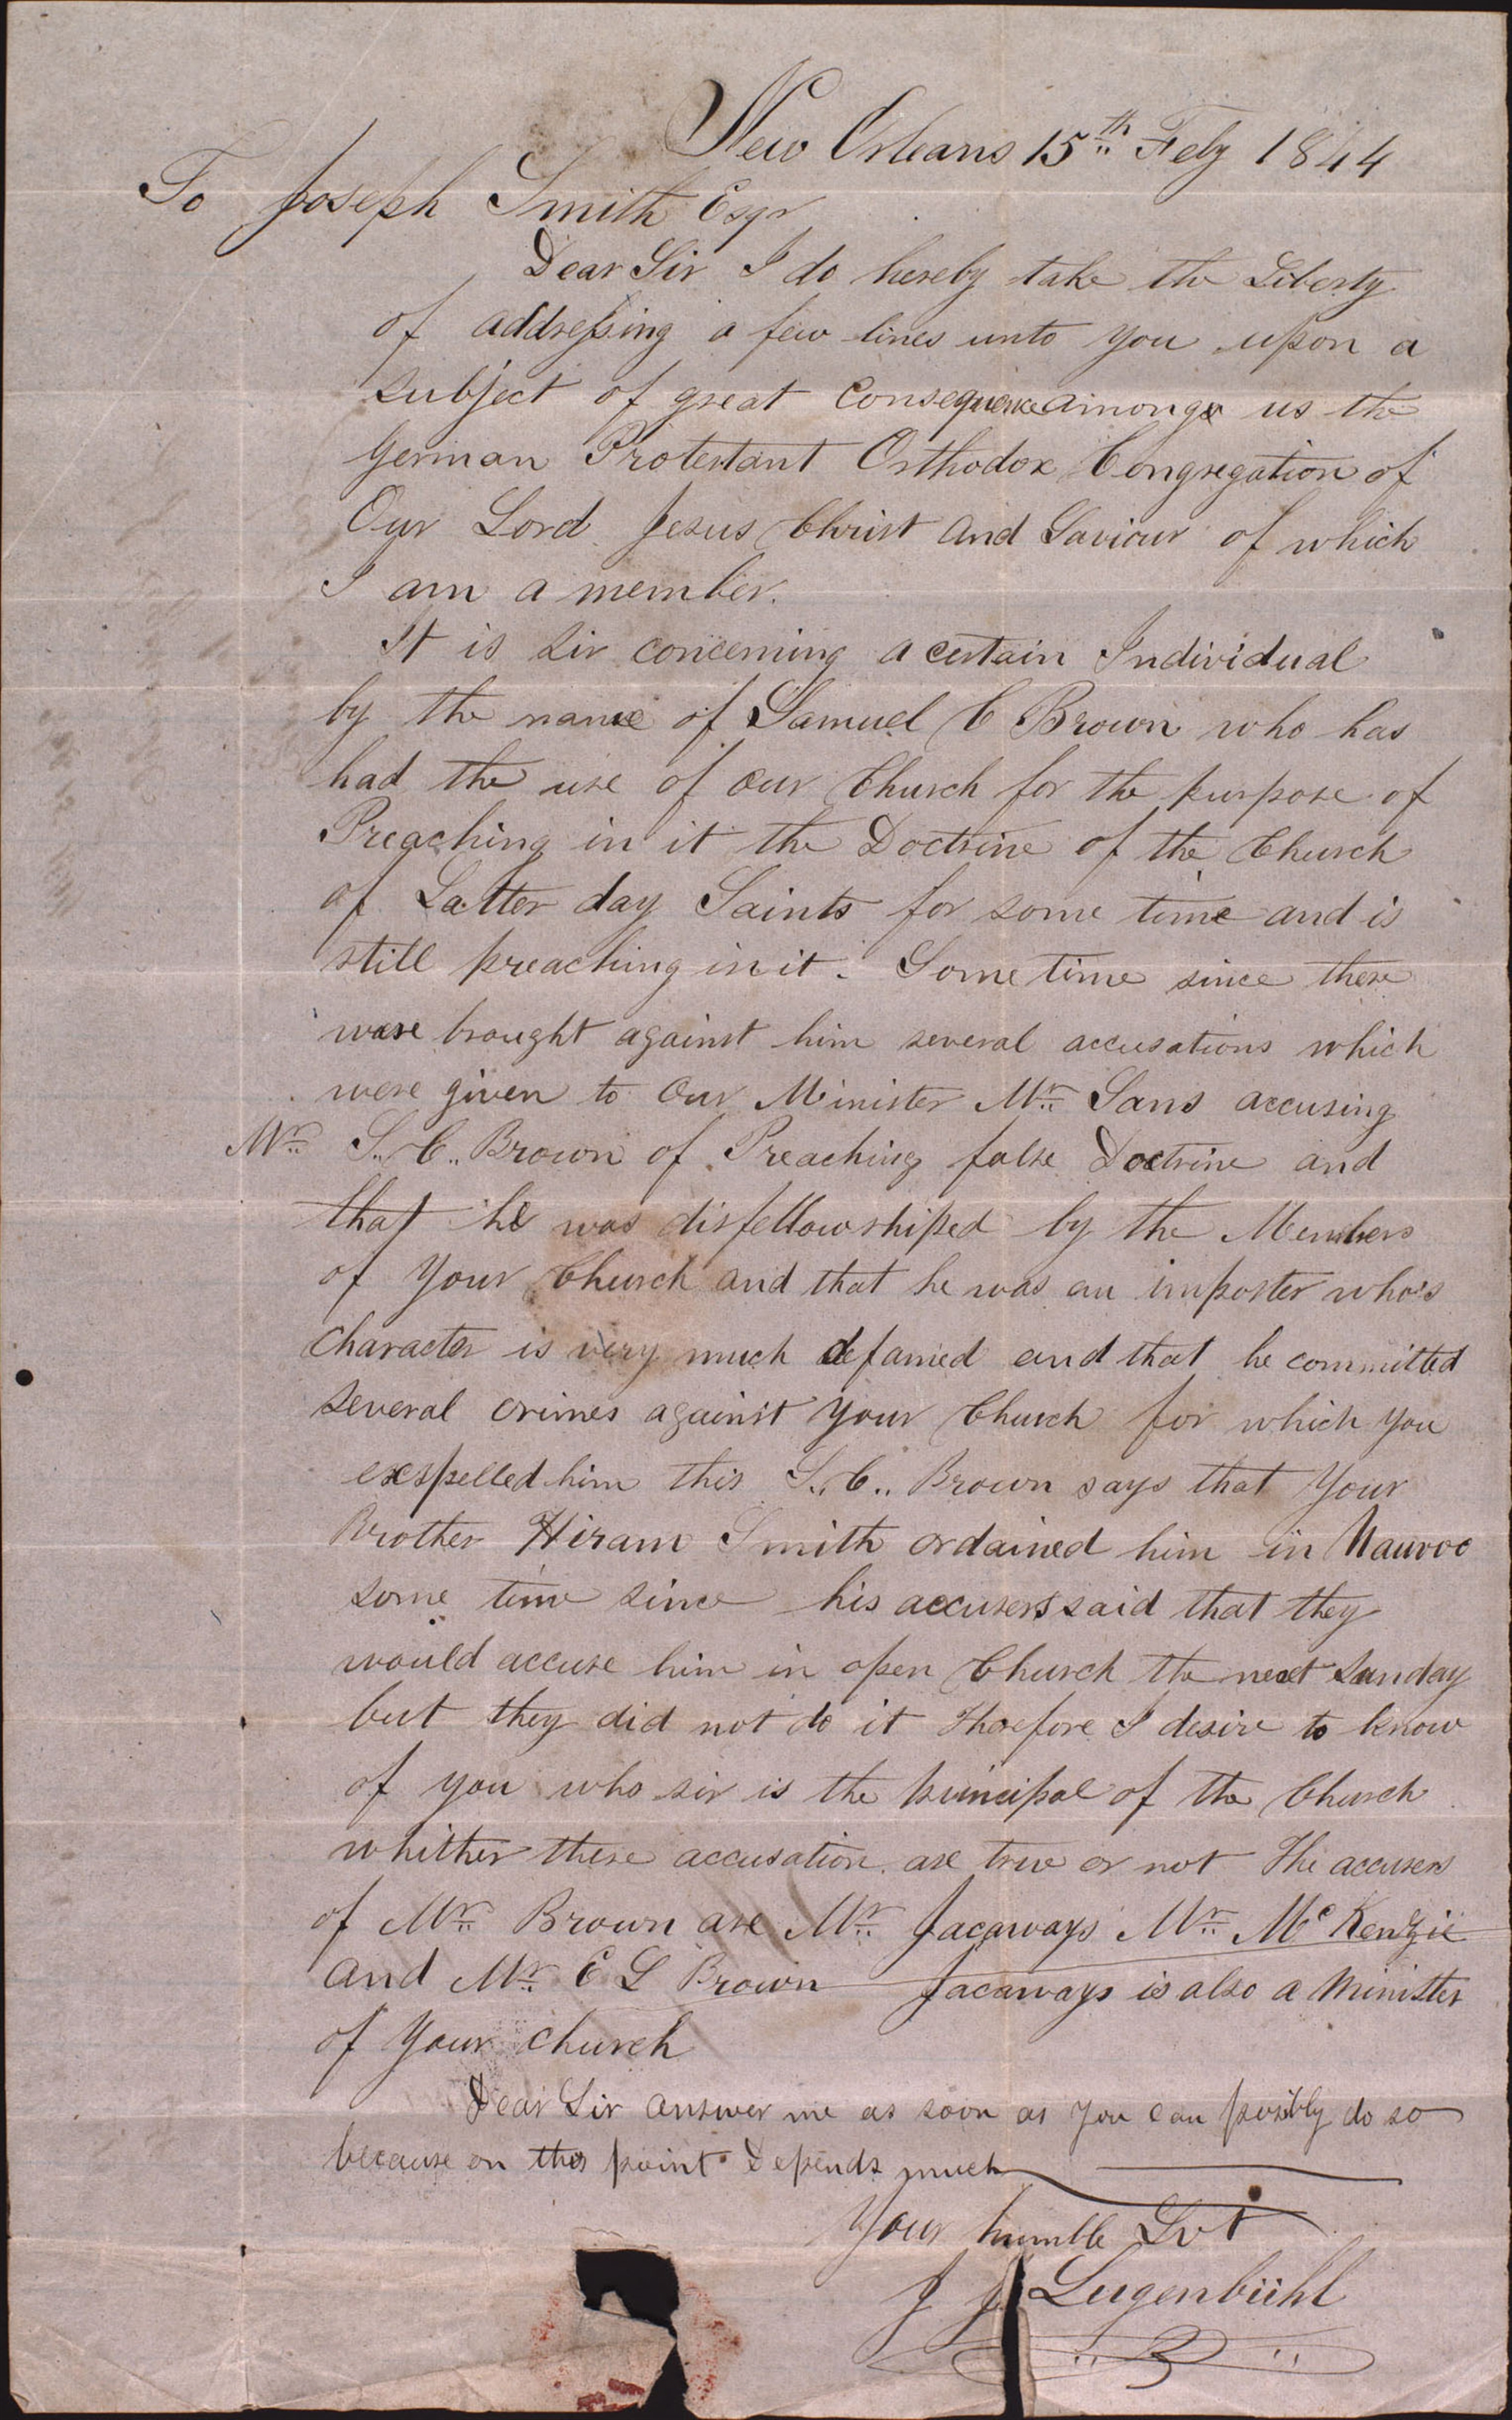 New Orleans 15th Feby 1844
To Joseph Smith Esqr
Dear Sir I do hereby take the Liberty
of addressing a few lines unto you upon a
subject of great Consequence among us the
German Protestant Orthodox Congregation of
Our Lord Jesus Christ and Saviour of which
I am a member.
It is sir concerning a certain Individual
by the name of Samuel C Brown who has
had the use of our Church for the purpose of
Preaching in it the Doctrine of the Church
of Latter day Saints for some time and is
still preaching in it. Some time since there
ware brought against him several accusations which
were given to our Minister Mr. Sans accusing
Mr. S. C. Brown of Preaching false Doctrine and
that he was disfellowshiped by the Members
of Your Church and that he was an imposter who's
Character is very much defamed and that he committed
several crimes against your Church for which you
exspelled him this S. C. Brown says that Your
Brother Hiram Smith ordained him in Nauvoo
some time since his accusers said that they
would accuse him in open Church the next Sunday
but they did not do it Therefore I desire to know
of you who sir is the principal of the Church
whither these accusation are true or not The accusers
of Mr. Brown are Mr. Jacaways Mr. McKenzie
and Mr. E L Brown Jacaways is also a Minister
of Your Church
Dear Sir answer me as soon as you can possibly do so
because on this point Depends much
Your humble Svt
J J Lugenbühl